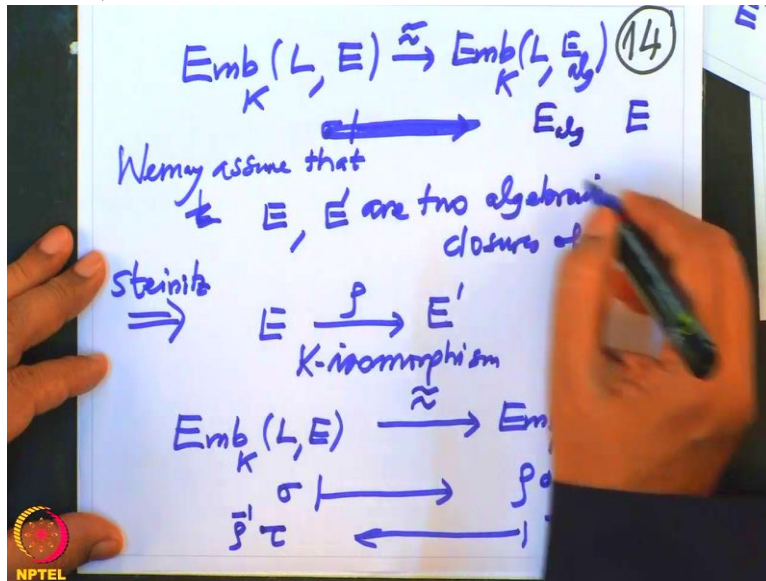 Emb_K (L, E) ⥲ Emb_K (L, E_alg) 14
E_alg E
E
We may assume that
E, E' are two algebraic
closures of
Steinitz
⇒ E →^ρ E'
K-isomorphism
Emb_K (L, E) ⥲ Em
σ ↦ ρ
ρ⁻¹ τ ⟵
NPTEL